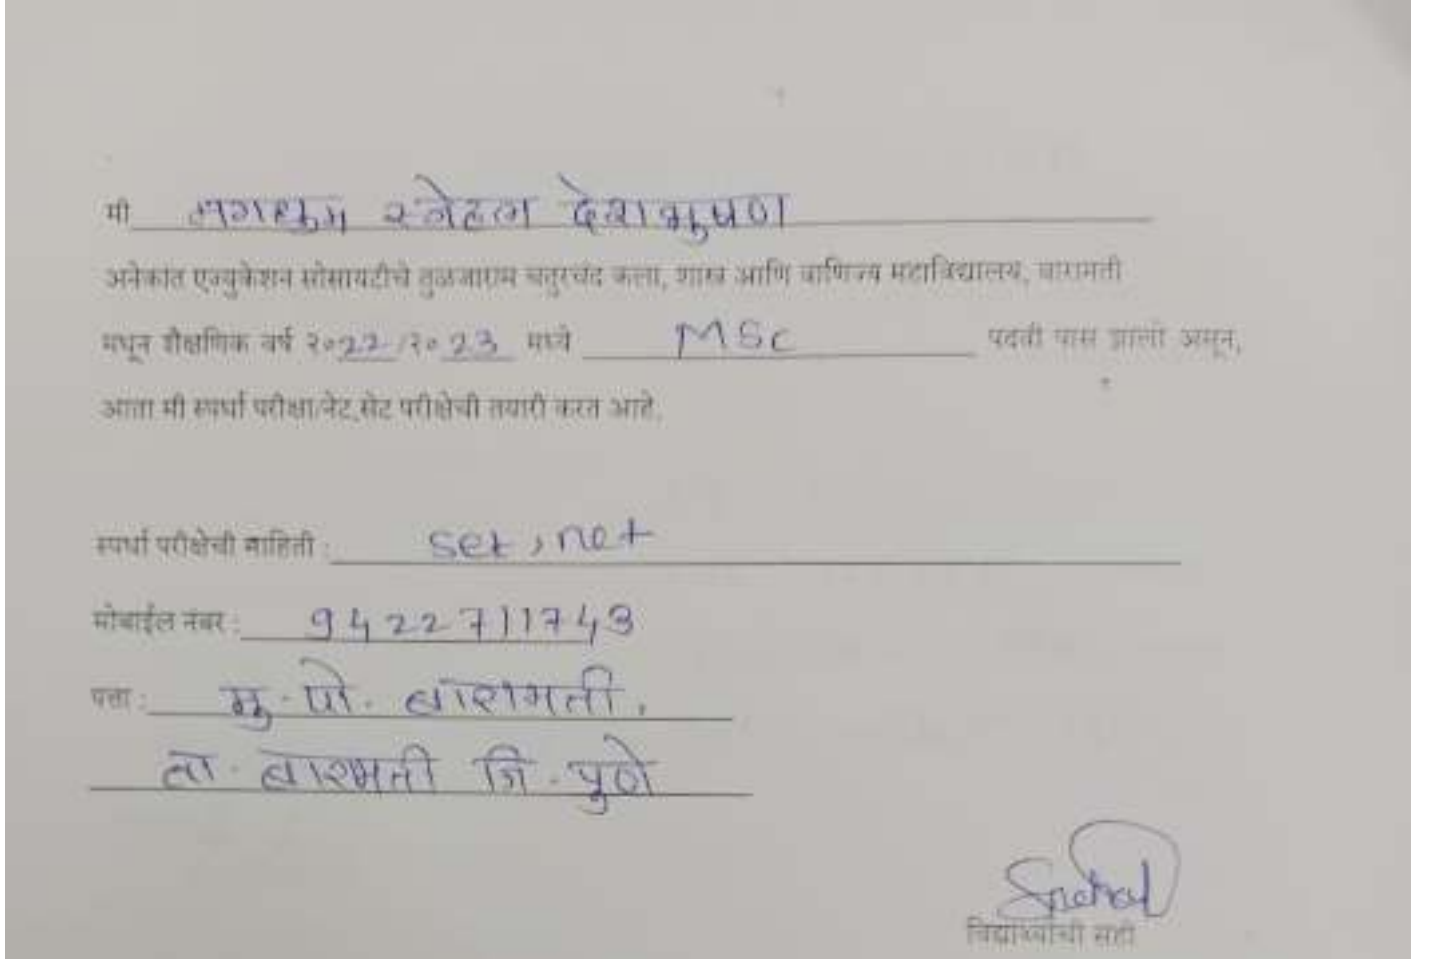 मी स्नेहल देशभुषण
अनेकांत एज्युकेशन सोसायटीचे तुळजाराम चतुरचंद कला, शास्त्र आणि वाणिज्य महाविद्यालय, बारामती
मधून शैक्षणिक वर्ष २०22 /२० 23 मध्ये MSc पदवी पास झालो असून,
आता मी स्पर्धा परीक्षा/नेट,सेट परीक्षेची तयारी करत आहे.
स्पर्धा परीक्षेची माहिती : set, net
मोबाईल नंबर : 9422711743
पत्ता : मु. पो. बारामती.
ता. बारामती जि. पुणे
Snehal
विद्यार्थ्याची सही